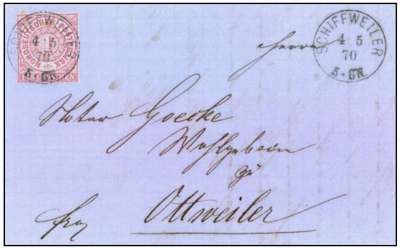 SCHIFFWEILER
4 5
70
5-6N.
SCHIFFWEILER
4 5
70
5-6N.
Herrn
Notar Goecke
Wohlgeboren
zu
Ottweiler
frei